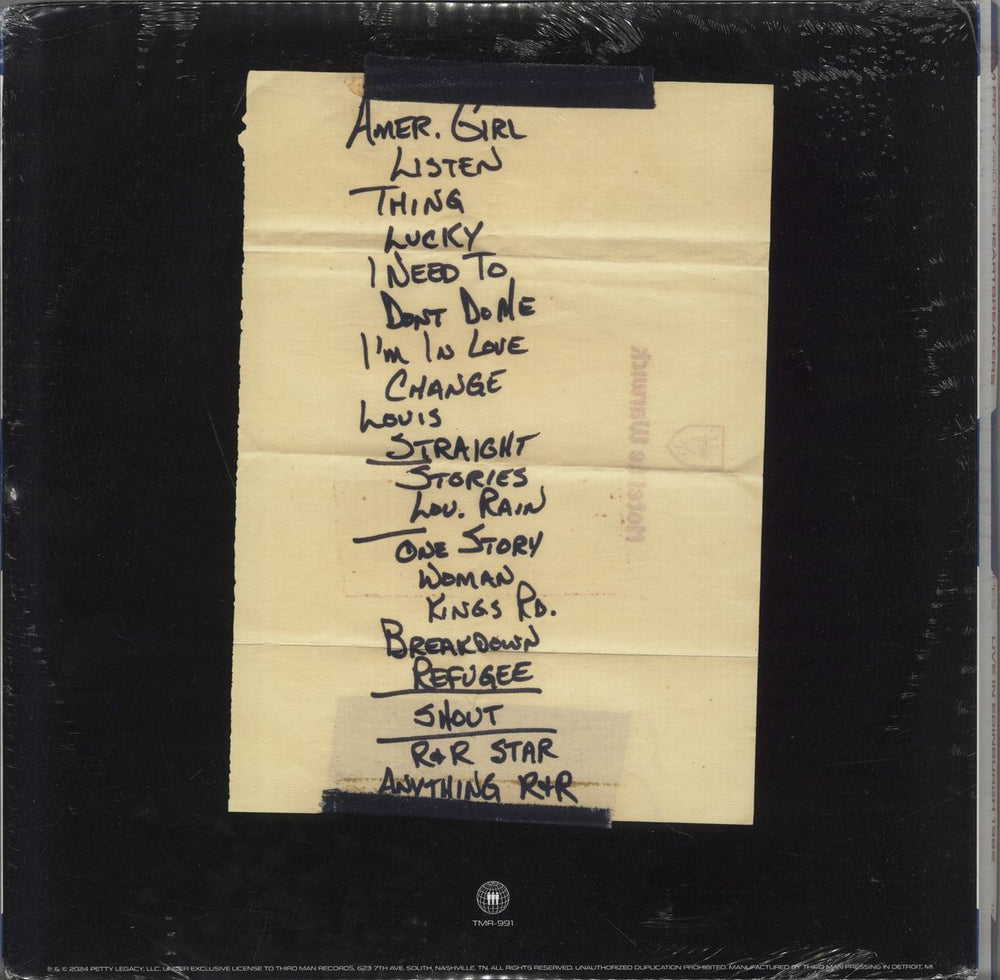 AMER. GIRL
LISTEN
THING
LUCKY
I NEED TO
DONT DO ME
I'M IN LOVE
CHANGE
LOUIS
STRAIGHT
STORIES
LOU. RAIN
ONE STORY
WOMAN
KINGS RD.
BREAKDOWN
REFUGEE
SHOUT
R&R STAR
ANYTHING R&R
Hotel le Warwick
TMR-991
℗ & © 2024 PETTY LEGACY, LLC. UNDER EXCLUSIVE LICENSE TO THIRD MAN RECORDS, 623 7TH AVE. SOUTH, NASHVILLE, TN. ALL RIGHTS RESERVED. UNAUTHORIZED DUPLICATION PROHIBITED. MANUFACTURED BY THIRD MAN PRESSING IN DETROIT, MI.